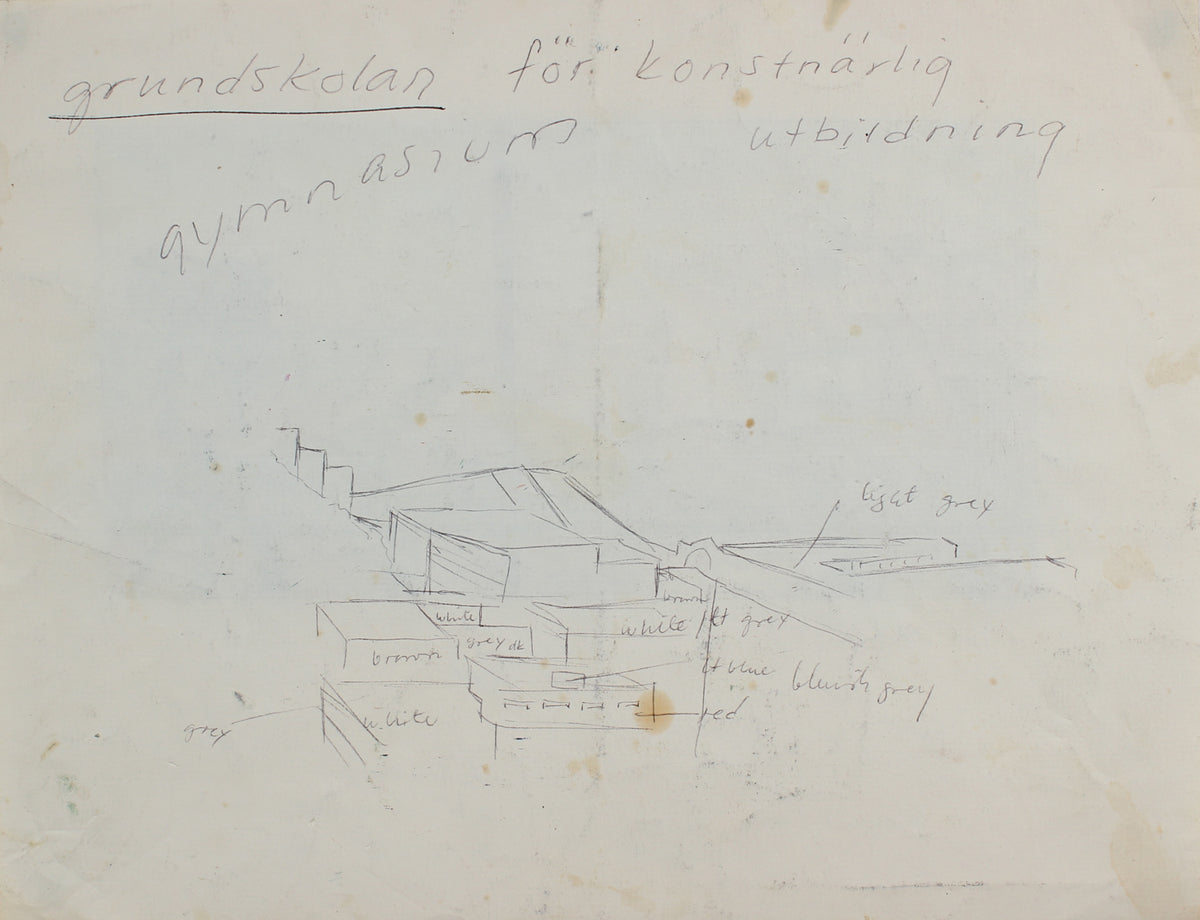 grundskolan för konstnärlig
utbildning
gymnasium
light grey
brown
white
white / lt grey
brown
grey dk
lt blue
bluish grey
white
red
grey